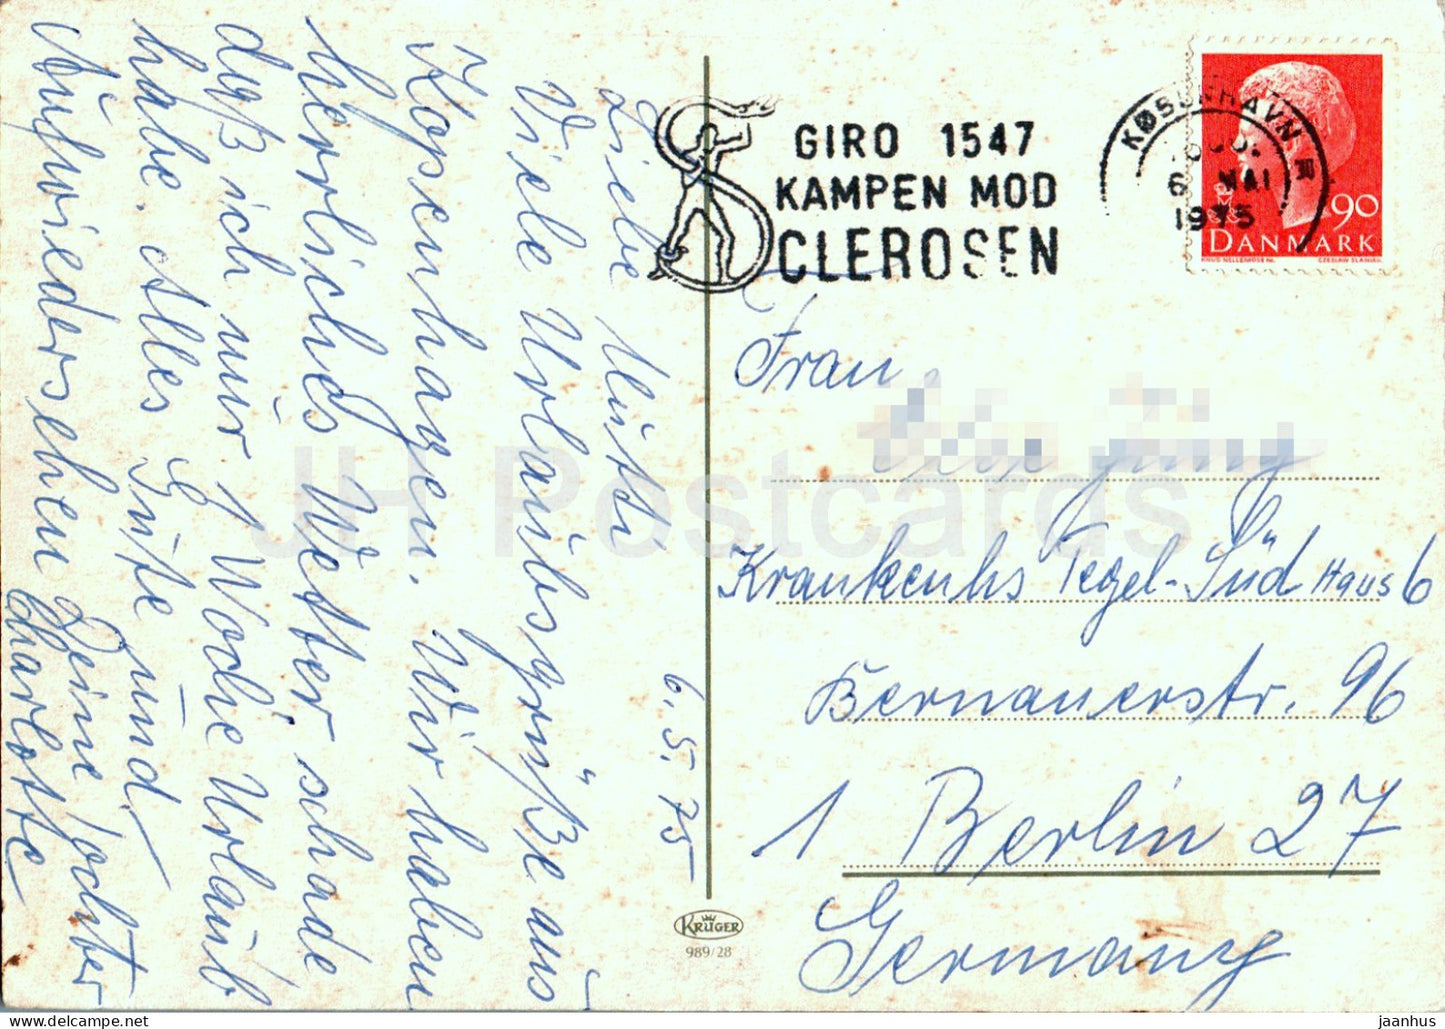 6.5.75
Liebe Mutti
Viele Urlaubsgrüße aus
Kopenhagen. Wir haben
herrliches Wetter, schade
daß ich nur 1 Woche Urlaub
habe. Alles Gute und
Aufwiedersehen Deine Tochter
Charlotte
GIRO 1547
KAMPEN MOD
SCLEROSEN
KØBENHAVN
6 MAI
1975
90
DANMARK
CZESLAW SLANIA
Frau
Krankenhs Tegel-Süd Haus 6
Bernauerstr. 96
1 Berlin 27
Germany
KRÜGER
989/28
JH Postcards
jaanhus | eBay